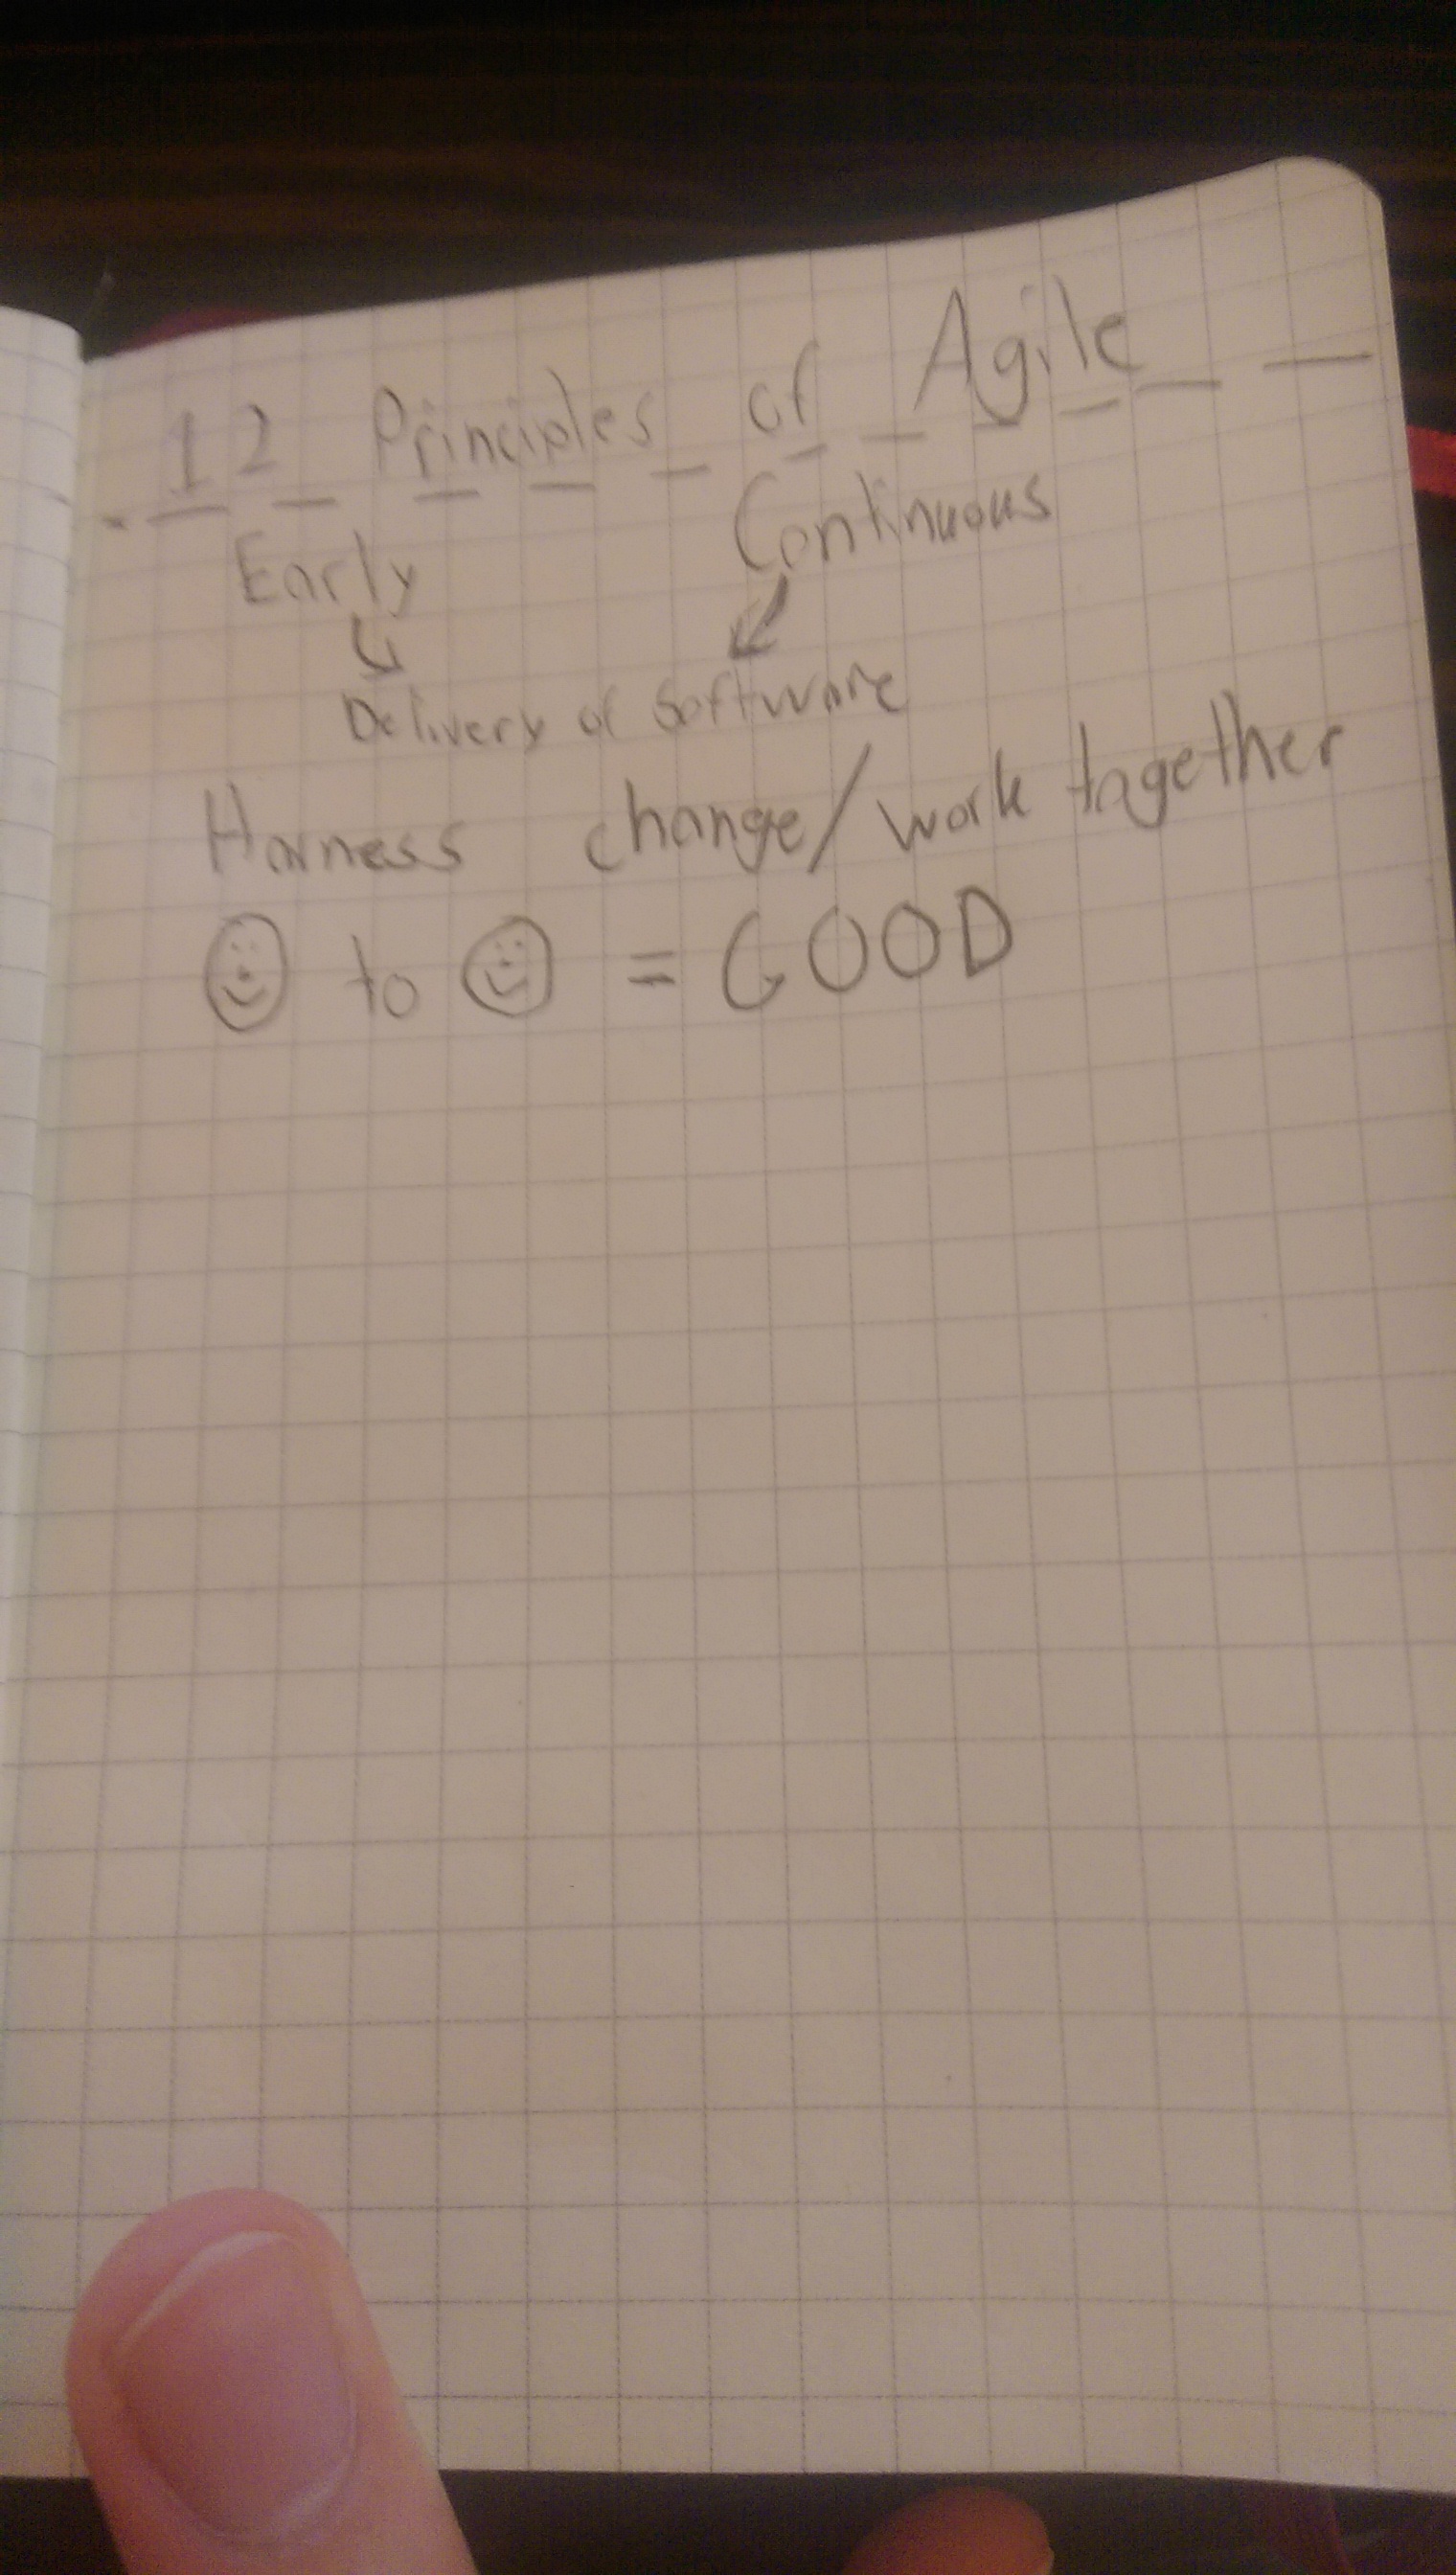 12 Principles of Agile
Early Continuous
Delivery of Software
Harness change/work together
to = GOOD